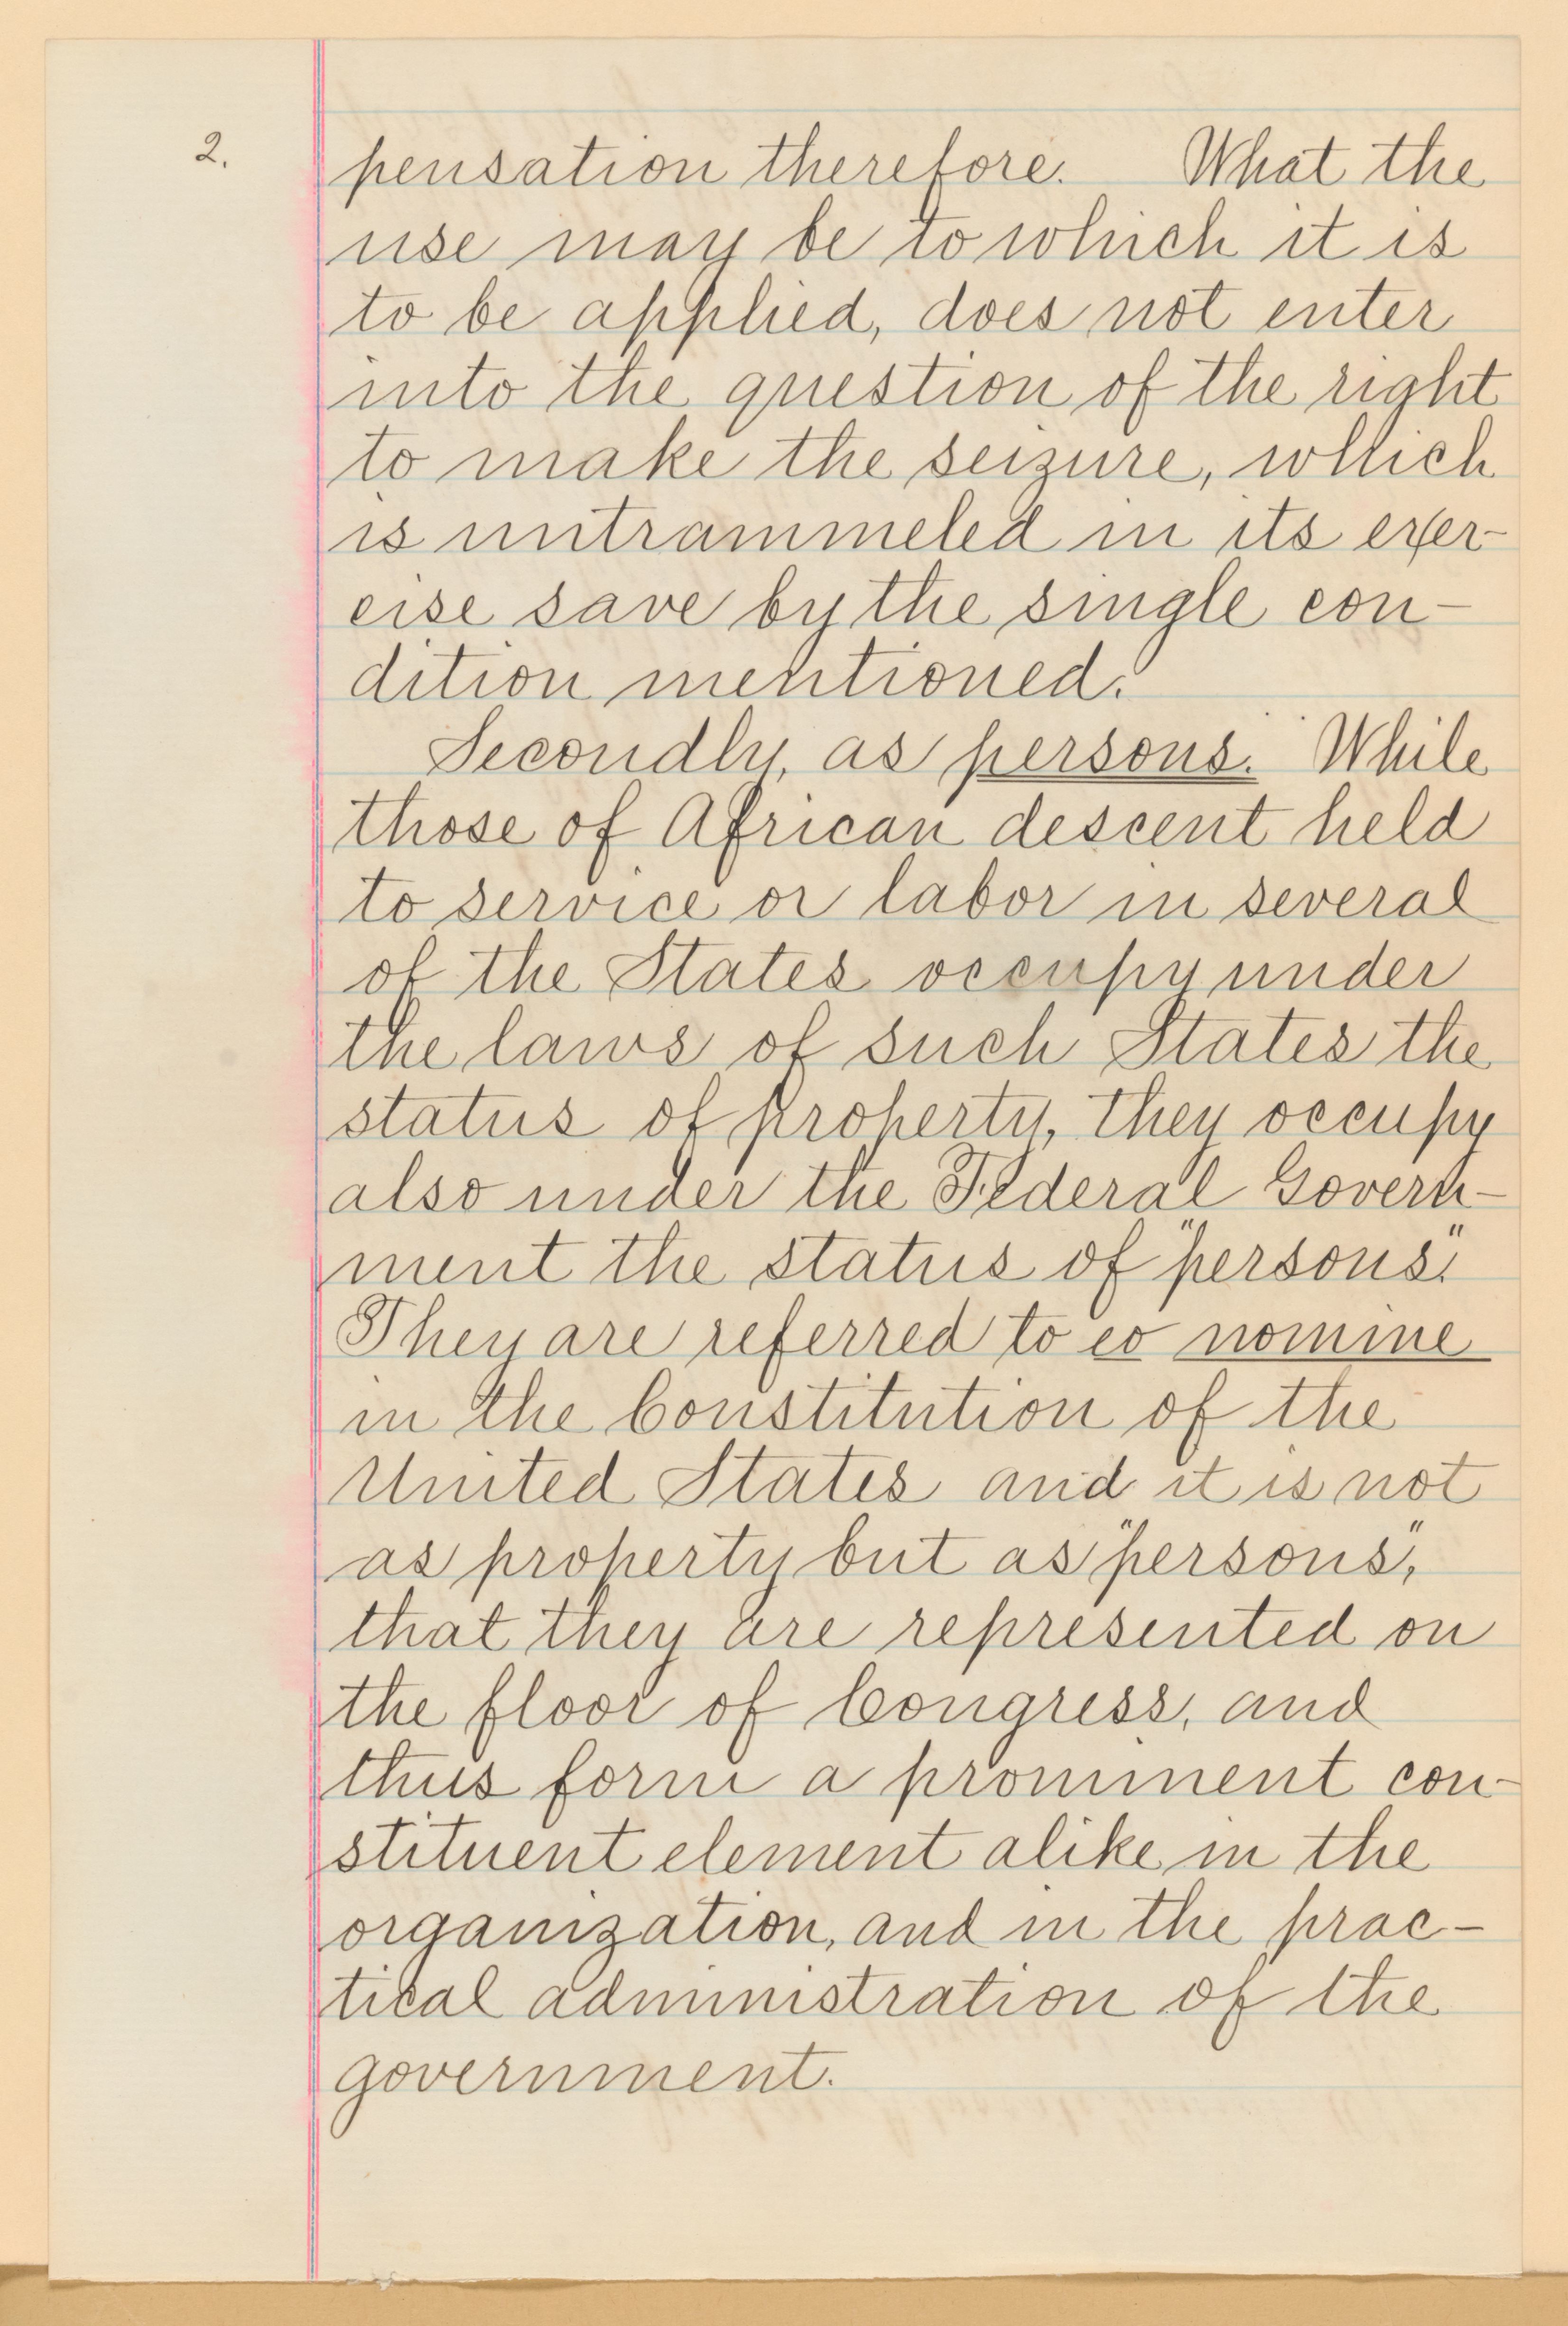 2.
pensation therefore. What the
use may be to which it is
to be applied, does not enter
into the question of the right
to make the seizure, which
is untrammeled in its exer-
cise save by the single con-
dition mentioned.
Secondly, as persons. While
those of African descent held
to service or labor in several
of the States occupy under
the laws of such States the
status of property, they occupy
also under the Federal Govern-
ment the status of "persons."
They are referred to eo nomine
in the Constitution of the
United States and it is not
as property but as "persons",
that they are represented on
the floor of Congress, and
thus form a prominent con-
stituent element alike in the
organization, and in the prac-
tical administration of the
government.